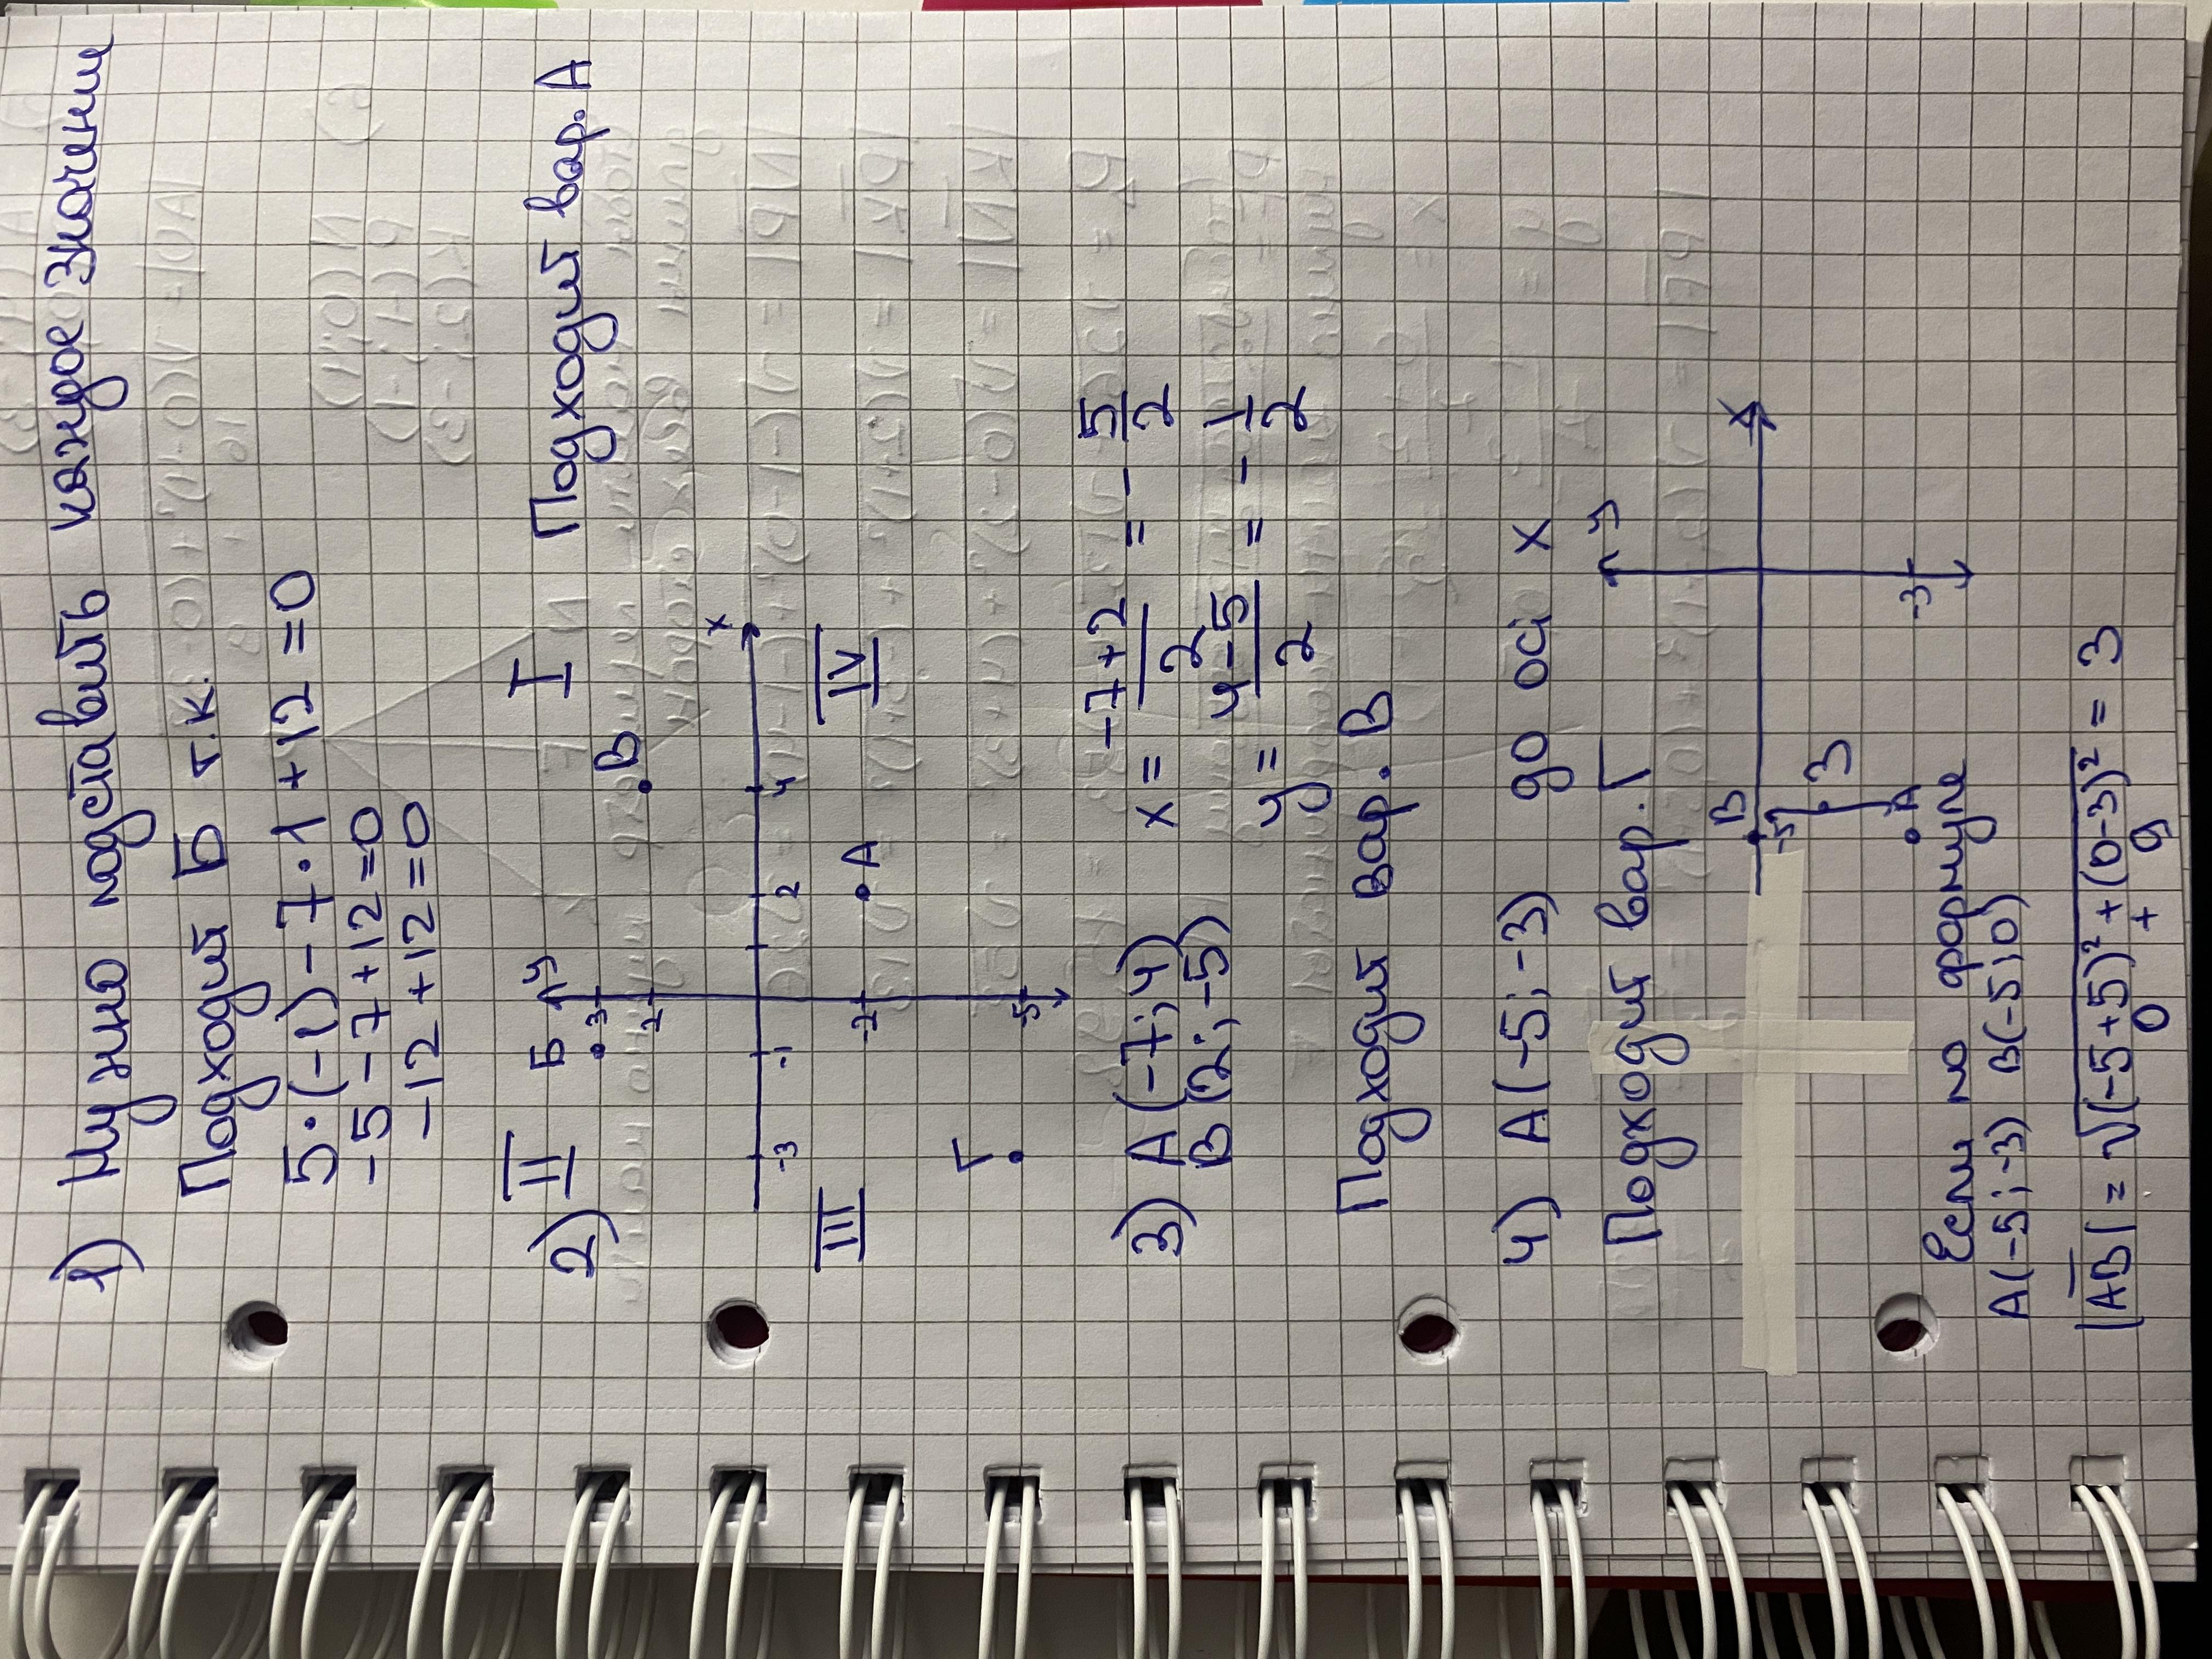 1) Нужно подставить каждое значение
Подходит Б т.к.
5·(-1)-7·1+12=0
-5-7+12=0
-12+12=0
2) II I Подходит вар. А
y
Б 3
2 В
-3 -1 2 4 x
-2 А
III IV
Г -5
3) А(-7;4) x = -7+2/2 = -5/2
В(2;-5) y = 4-5/2 = -1/2
Подходит вар. В
4) А(-5;-3) до осі x
Подходит вар. Г
y
В x
-5
3
А -3
Если по формуле
А(-5;-3) В(-5;0)
|AB| = √(-5+5)²+(0-3)² = 3
0 + 9